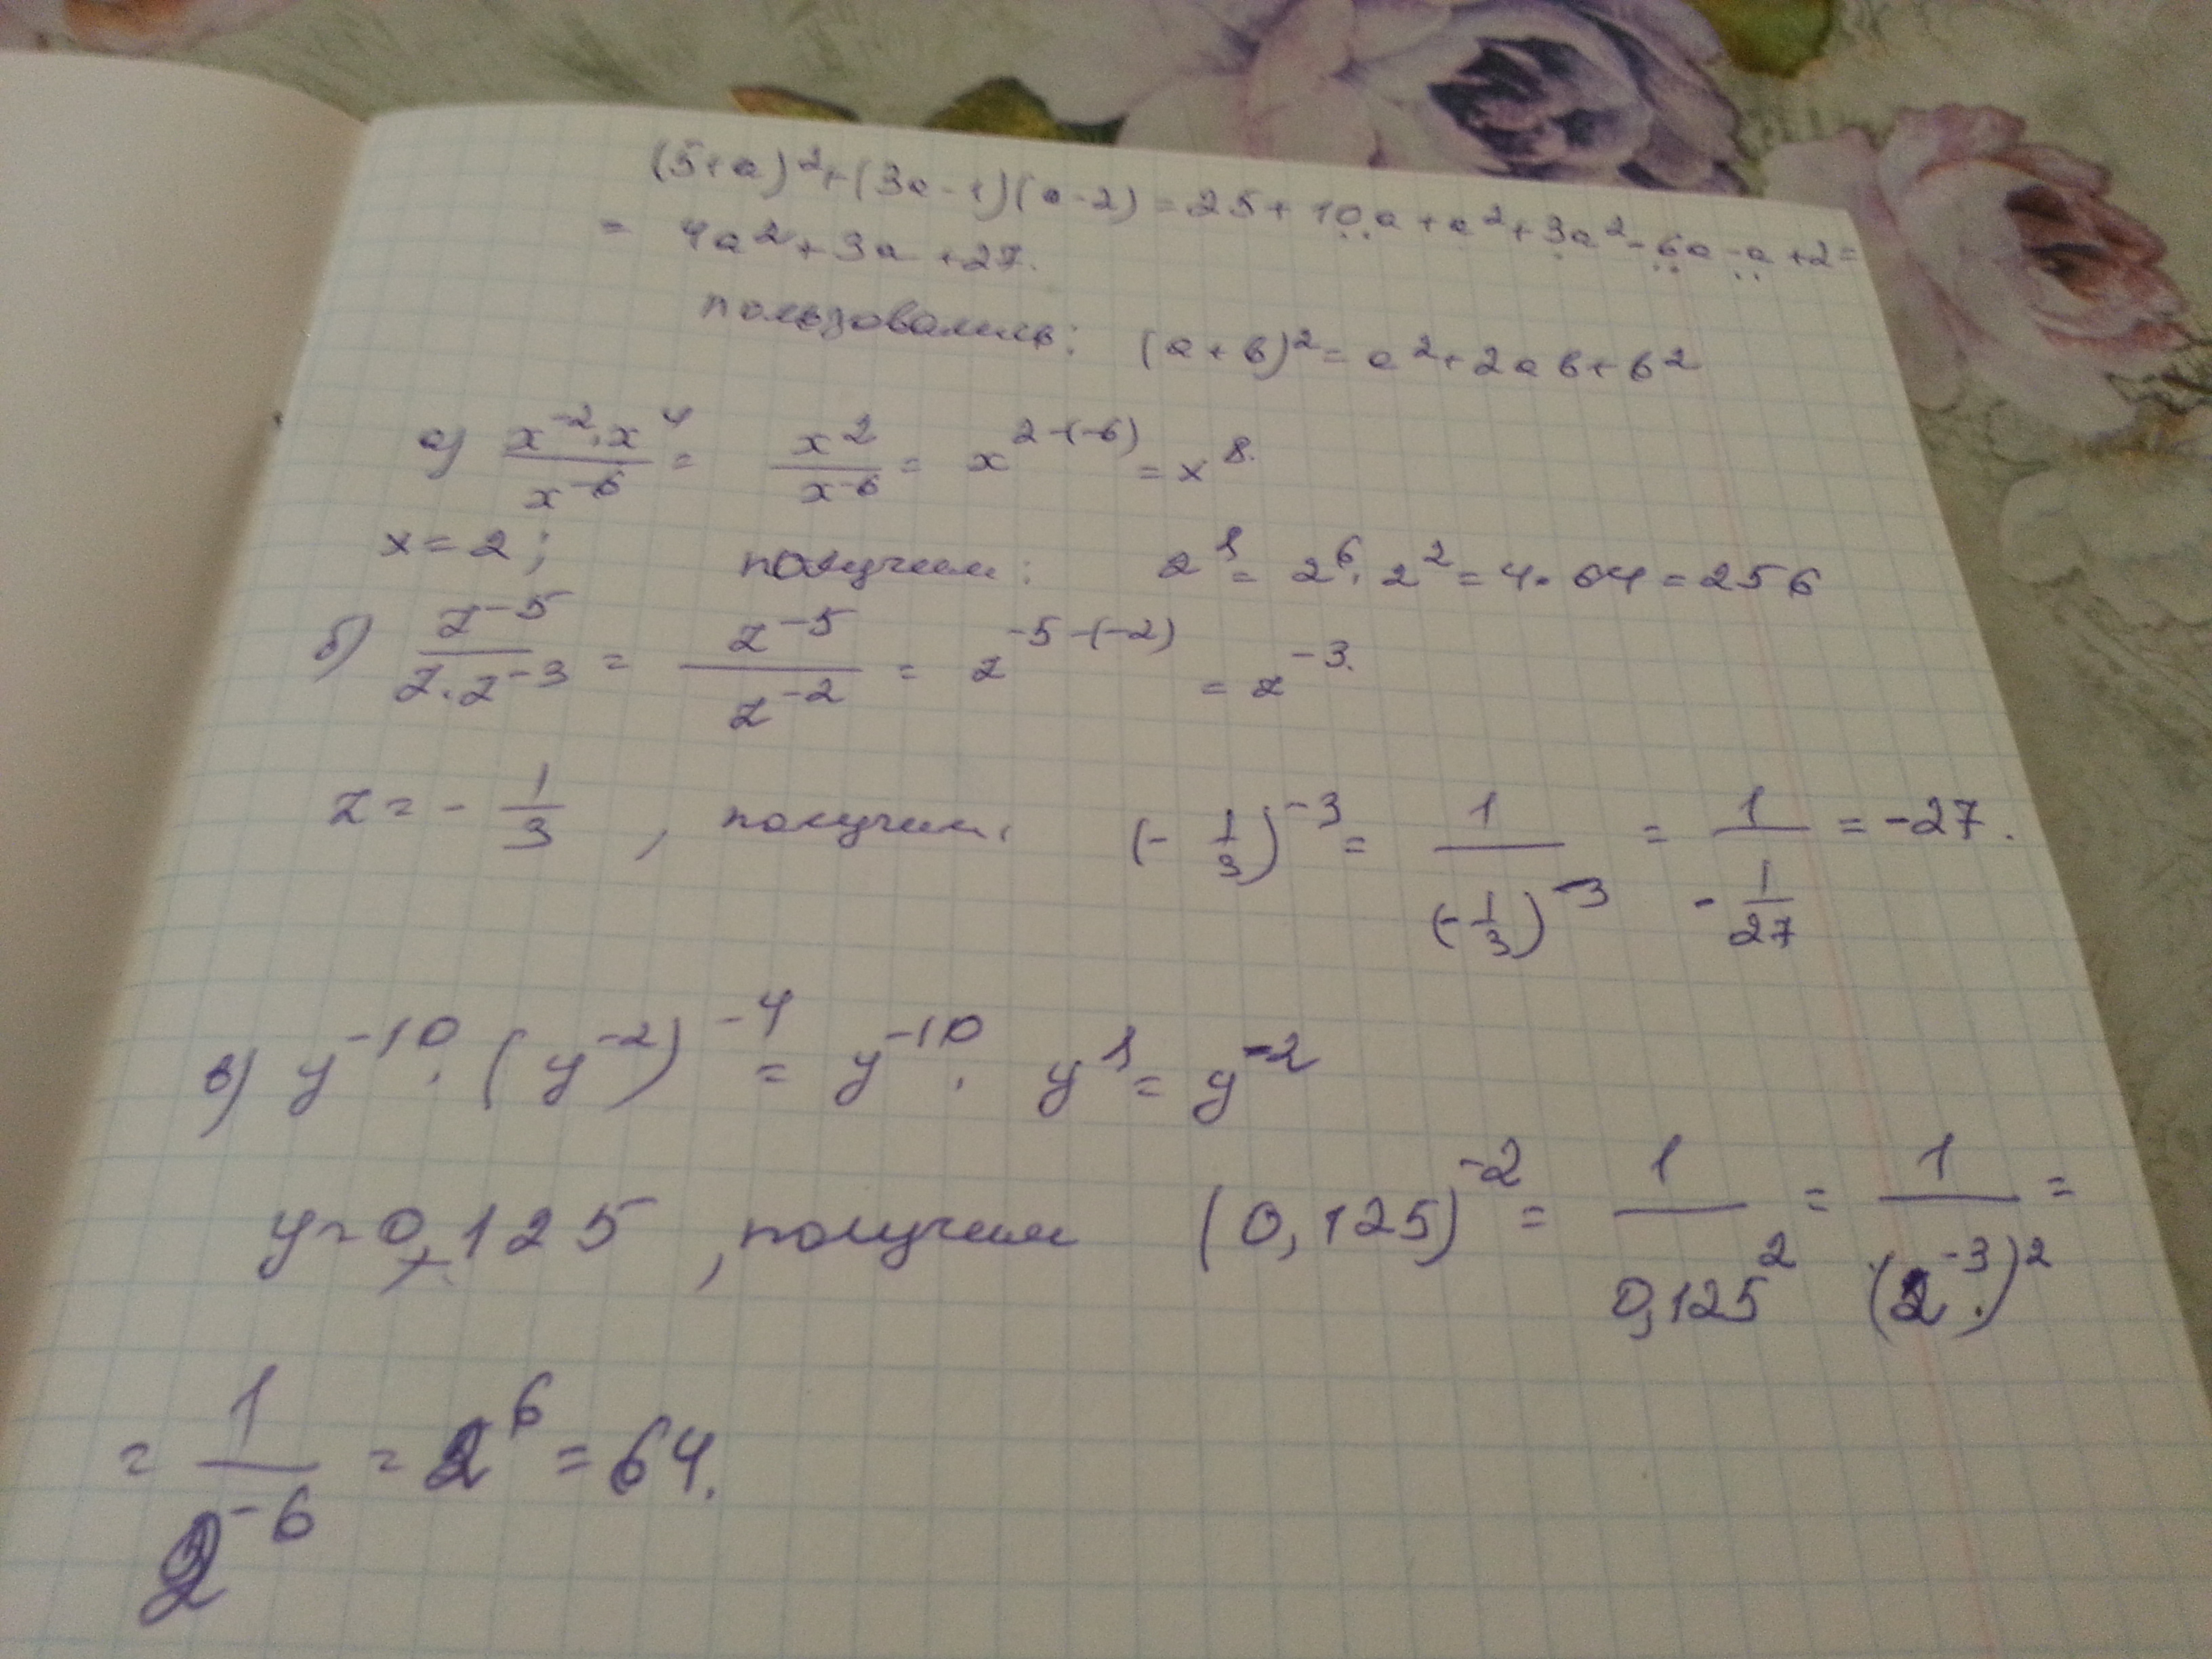 (5+a)²+(3a-1)(a-2)=25+10a+a²+3a²-6a-a+2=
= 4a²+3a+27.
пользовались: (a+b)²=a²+2ab+b²
а) x⁻²·x⁴/x⁻⁶ = x²/x⁻⁶ = x²⁻⁽⁻⁶⁾ = x⁸.
x=2; получим: 2⁸=2⁶·2²=4·64=256
б) z⁻⁵/z·z⁻³ = z⁻⁵/z⁻² = z⁻⁵⁻⁽⁻²⁾ = z⁻³.
z=-1/3, получим, (-1/3)⁻³ = 1/(-1/3)⁻³ = 1/-1/27 = -27.
в) y⁻¹⁰·(y⁻²)⁻⁴ = y⁻¹⁰·y⁸ = y⁻²
y=0,125, получим (0,125)⁻² = 1/0,125² = 1/(2⁻³)² =
= 1/2⁻⁶ = 2⁶ = 64.